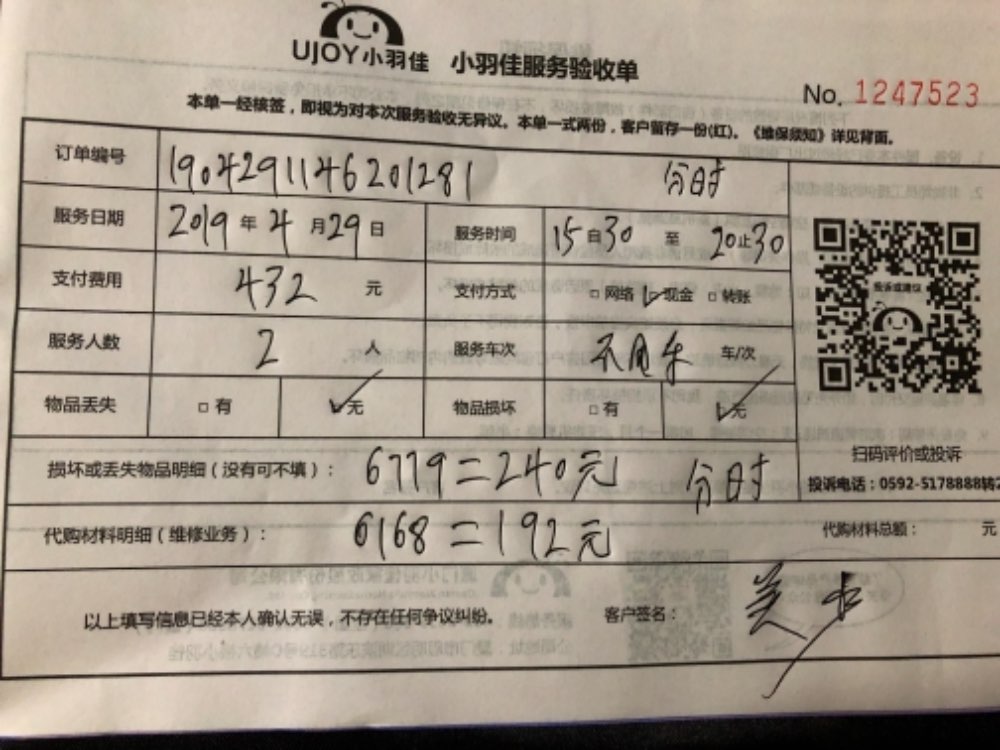 UJOY小羽佳 小羽佳服务验收单
No. 1247523
本单一经核签，即视为对本次服务验收无异议。本单一式两份，客户留存一份(红)。《维保须知》详见背面。
订单编号 1904291146201281 分时
服务日期 2019年4月29日 服务时间 15自30至20止30
支付费用 432元 支付方式 □网络 ☑现金 □转账
投诉或建议
服务人数 2人 服务车次 不用车 车/次
物品丢失 □有 ☑无 物品损坏 □有 ☑无
扫码评价或投诉
损坏或丢失物品明细（没有可不填）： 6779=240元 分时
投诉电话：0592-5178888转2
代购材料明细（维修业务）： 6168=192元 代购材料总额： 元
以上填写信息已经本人确认无误，不存在任何争议纠纷。 客户签名：